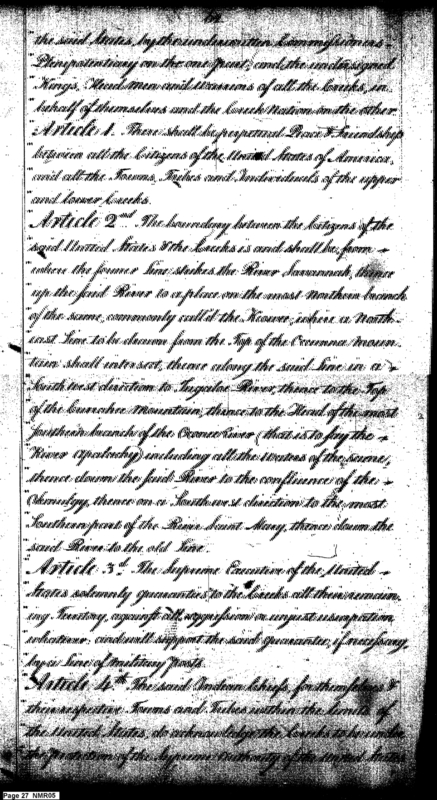 the said States, by the underwritten Commissioners
Plenipotentiary on the one part; and the undersigned
Kings, Head men and Warriors of all the Creeks, in
behalf of themselves and the Creek Nation on the other
Article 1. There shall be perpetual Peace & Friendship
between all the Citizens of the United States of America
and all the Towns, Tribes and Individuals of the upper
and lower Creeks.
Article 2nd The boundary between the Citizens of the
said United States & the Creeks is and shall be, from
where the former Line strikes the River Savannah, thence
up the said River to a place on the most Northern branch
of the same, commonly call'd the Keowee, where a North-
east Line to be drawn from the Top of the Occunna moun-
tain shall intersect, thence along the said Line in a
South West direction to Tugaloe River, thence to the Top
of the Currahee Mountain, thence to the Head of the most
Southern branch of the Oconee River (that is to say the
River Apalachy) including all the waters of the same,
thence down the said River to the confluence of the
Okmulgy, thence on a South west direction to the most
Southern part of the River Saint Mary, thence down the
said River to the old Line.
Article 3d. The Supreme Executive of the United
States solemnly guaranties to the Creeks all their remain-
ing Territory, against all aggression or unjust usurpation
whatever; and will support the said guarantee, if necessary,
by a Line of military posts.
Article 4th The said Indian Chiefs, for themselves &
their respective Towns and Tribes within the limits of
the United States, do acknowledge the Creeks to be under
the protection of the Supreme Authority of the United States
Page 27 NMR05